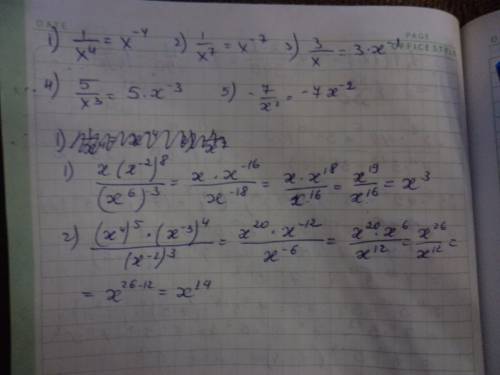 DATE PAGE
1) 1/x⁴ = x⁻⁴ 2) 1/x⁷ = x⁻⁷ 3) 3/x = 3·x⁻¹
4) 5/x³ = 5·x⁻³ 5) -7/x² = -7x⁻²
1)
1) x(x⁻²)⁸/(x⁶)⁻³ = x·x⁻¹⁶/x⁻¹⁸ = x·x¹⁸/x¹⁶ = x¹⁹/x¹⁶ = x³
2) (x⁴)⁵·(x⁻³)⁴/(x⁻²)³ = x²⁰·x⁻¹²/x⁻⁶ = x²⁰·x⁶/x¹² = x²⁶/x¹² =
= x²⁶⁻¹² = x¹⁴